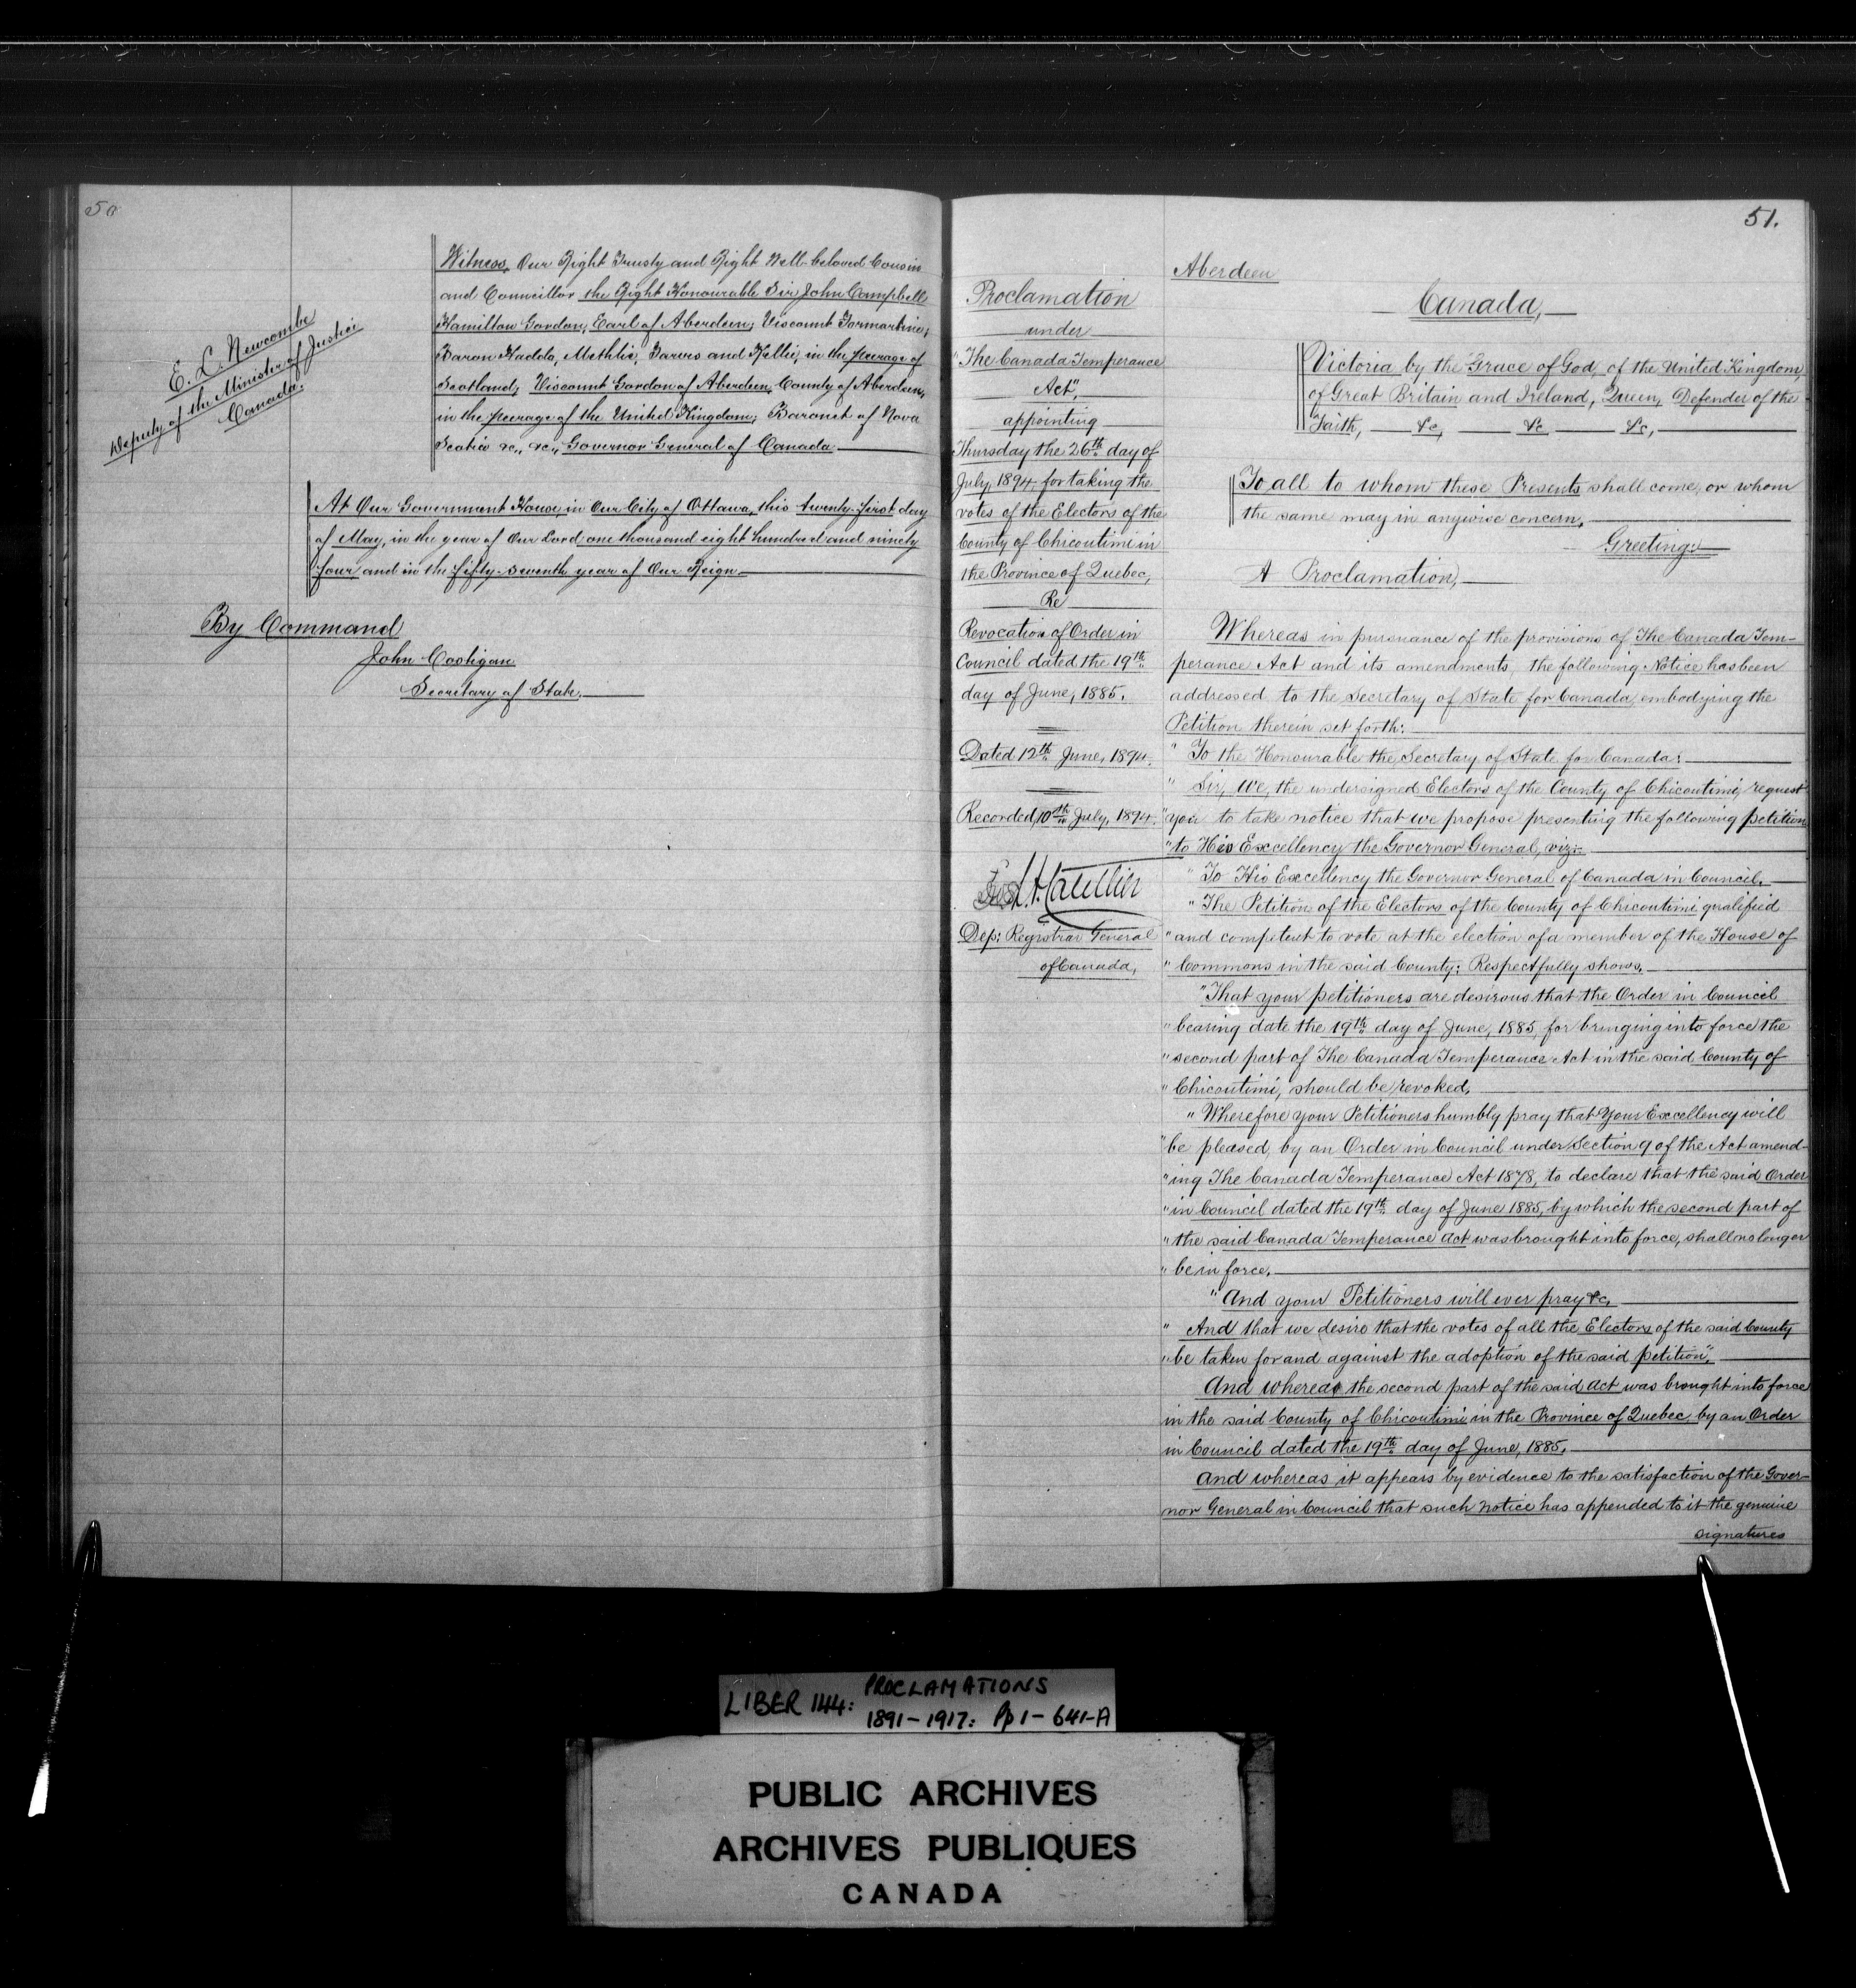 50
Witness, Our Right Trusty and Right Well-beloved Cousin
and Councillor the Right Honourable Sir John Campbell
Hamilton Gordon, Earl of Aberdeen; Viscount Formartine;
Baron Haddo, Methlic, Tarves and Kellie, in the peerage of
Scotland; Viscount Gordon of Aberdeen, County of Aberdeen,
in the peerage of the United Kingdom; Baronet of Nova
Scotia &c., &c., Governor General of Canada
E. L. Newcombe
Deputy of the Minister of Justice
Canada.
At Our Government House, in Our City of Ottawa, this twenty-first day
of May, in the year of Our Lord one thousand eight hundred and ninety
four and in the fifty-seventh year of Our Reign.
By Command
John Costigan
Secretary of State.
51.
Proclamation
under
"The Canada Temperance
Act",
appointing
Thursday the 26th day of
July, 1894, for taking the
votes of the Electors of the
County of Chicoutimi in
the Province of Quebec,
Re
Revocation of Order in
Council dated the 19th
day of June, 1885.
Dated 12th June, 1894.
Recorded 10th July, 1894.
L. A. Catellier
Dep: Registrar General
of Canada,
Aberdeen
Canada,
Victoria by the Grace of God, of the United Kingdom,
of Great Britain and Ireland, Queen, Defender of the
Faith, &c, &c &c,
To all to whom these Presents shall come, or whom
the same may in anywise concern,
Greeting:
A Proclamation,
Whereas in pursuance of the provisions of The Canada Tem-
perance Act and its amendments, the following Notice has been
addressed to the Secretary of State for Canada, embodying the
Petition therein set forth:
" To the Honourable the Secretary of State for Canada:
" Sir, We, the undersigned Electors of the County of Chicoutimi, request
"you to take notice that we propose presenting the following petition
"to His Excellency the Governor General, viz:-
" To His Excellency the Governor General of Canada in Council,
" The Petition of the Electors of the County of Chicoutimi qualified
" and competent to vote at the election of a member of the House of
" Commons in the said County: Respectfully shows,
"That your petitioners are desirous that the Order in Council
" bearing date the 19th day of June, 1885, for bringing into force the
" second part of The Canada Temperance Act in the said County of
" Chicoutimi, should be revoked,
" Wherefore your Petitioners humbly pray that Your Excellency will
"be pleased, by an Order in Council under Section 9 of the Act amend-
"ing The Canada Temperance Act 1878, to declare that the said Order
"in Council dated the 19th day of June 1885, by which the second part of
"the said Canada Temperance Act was brought into force, shall no longer
" be in force.
" And your Petitioners will ever pray &c,
" And that we desire that the votes of all the Electors of the said County
" be taken for and against the adoption of the said petition",
And whereas the second part of the said Act was brought into force
in the said County of Chicoutimi in the Province of Quebec, by an Order
in Council dated the 19th day of June, 1885.
And whereas it appears by evidence to the satisfaction of the Gover-
nor General in Council that such notice has appended to it the genuine
signatures
LIBER 144: PROCLAMATIONS
1891-1917: Pp 1- 641-A
PUBLIC ARCHIVES
ARCHIVES PUBLIQUES
CANADA